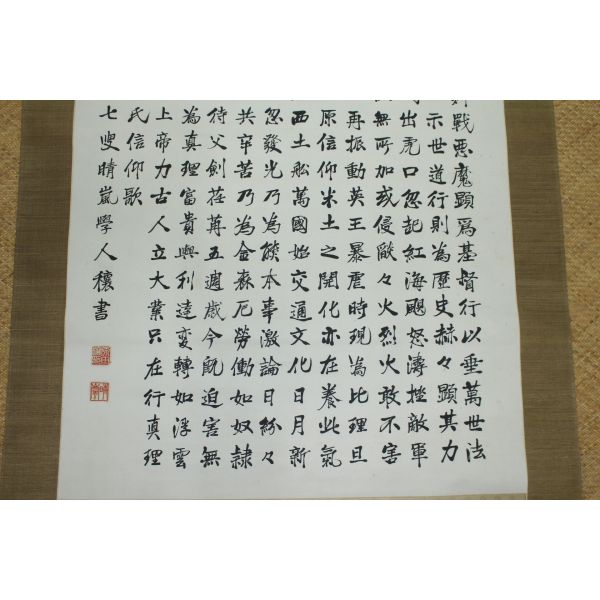 戰悪魔顕爲基督行以垂萬世法
示世道行則為歴史赫々顕其力
出虎口忽記紅海颶怒濤挫敵軍
無所加或侵燄々火烈火敢不害
再振動英王暴虐時現為此理且
原信仰米土之開化亦在養此氣
西土船萬國始交通文化日月新
忽發光乃為熊本奉激論日紛々
共辛苦乃為合森厄勞働如奴隷
待父劍荏苒五週歳今既迫害無
為真理富貴與利達変轉如浮雲
上帝力古人立大業只在行真理
氏信仰歌
七叟晴嵐學人穰書